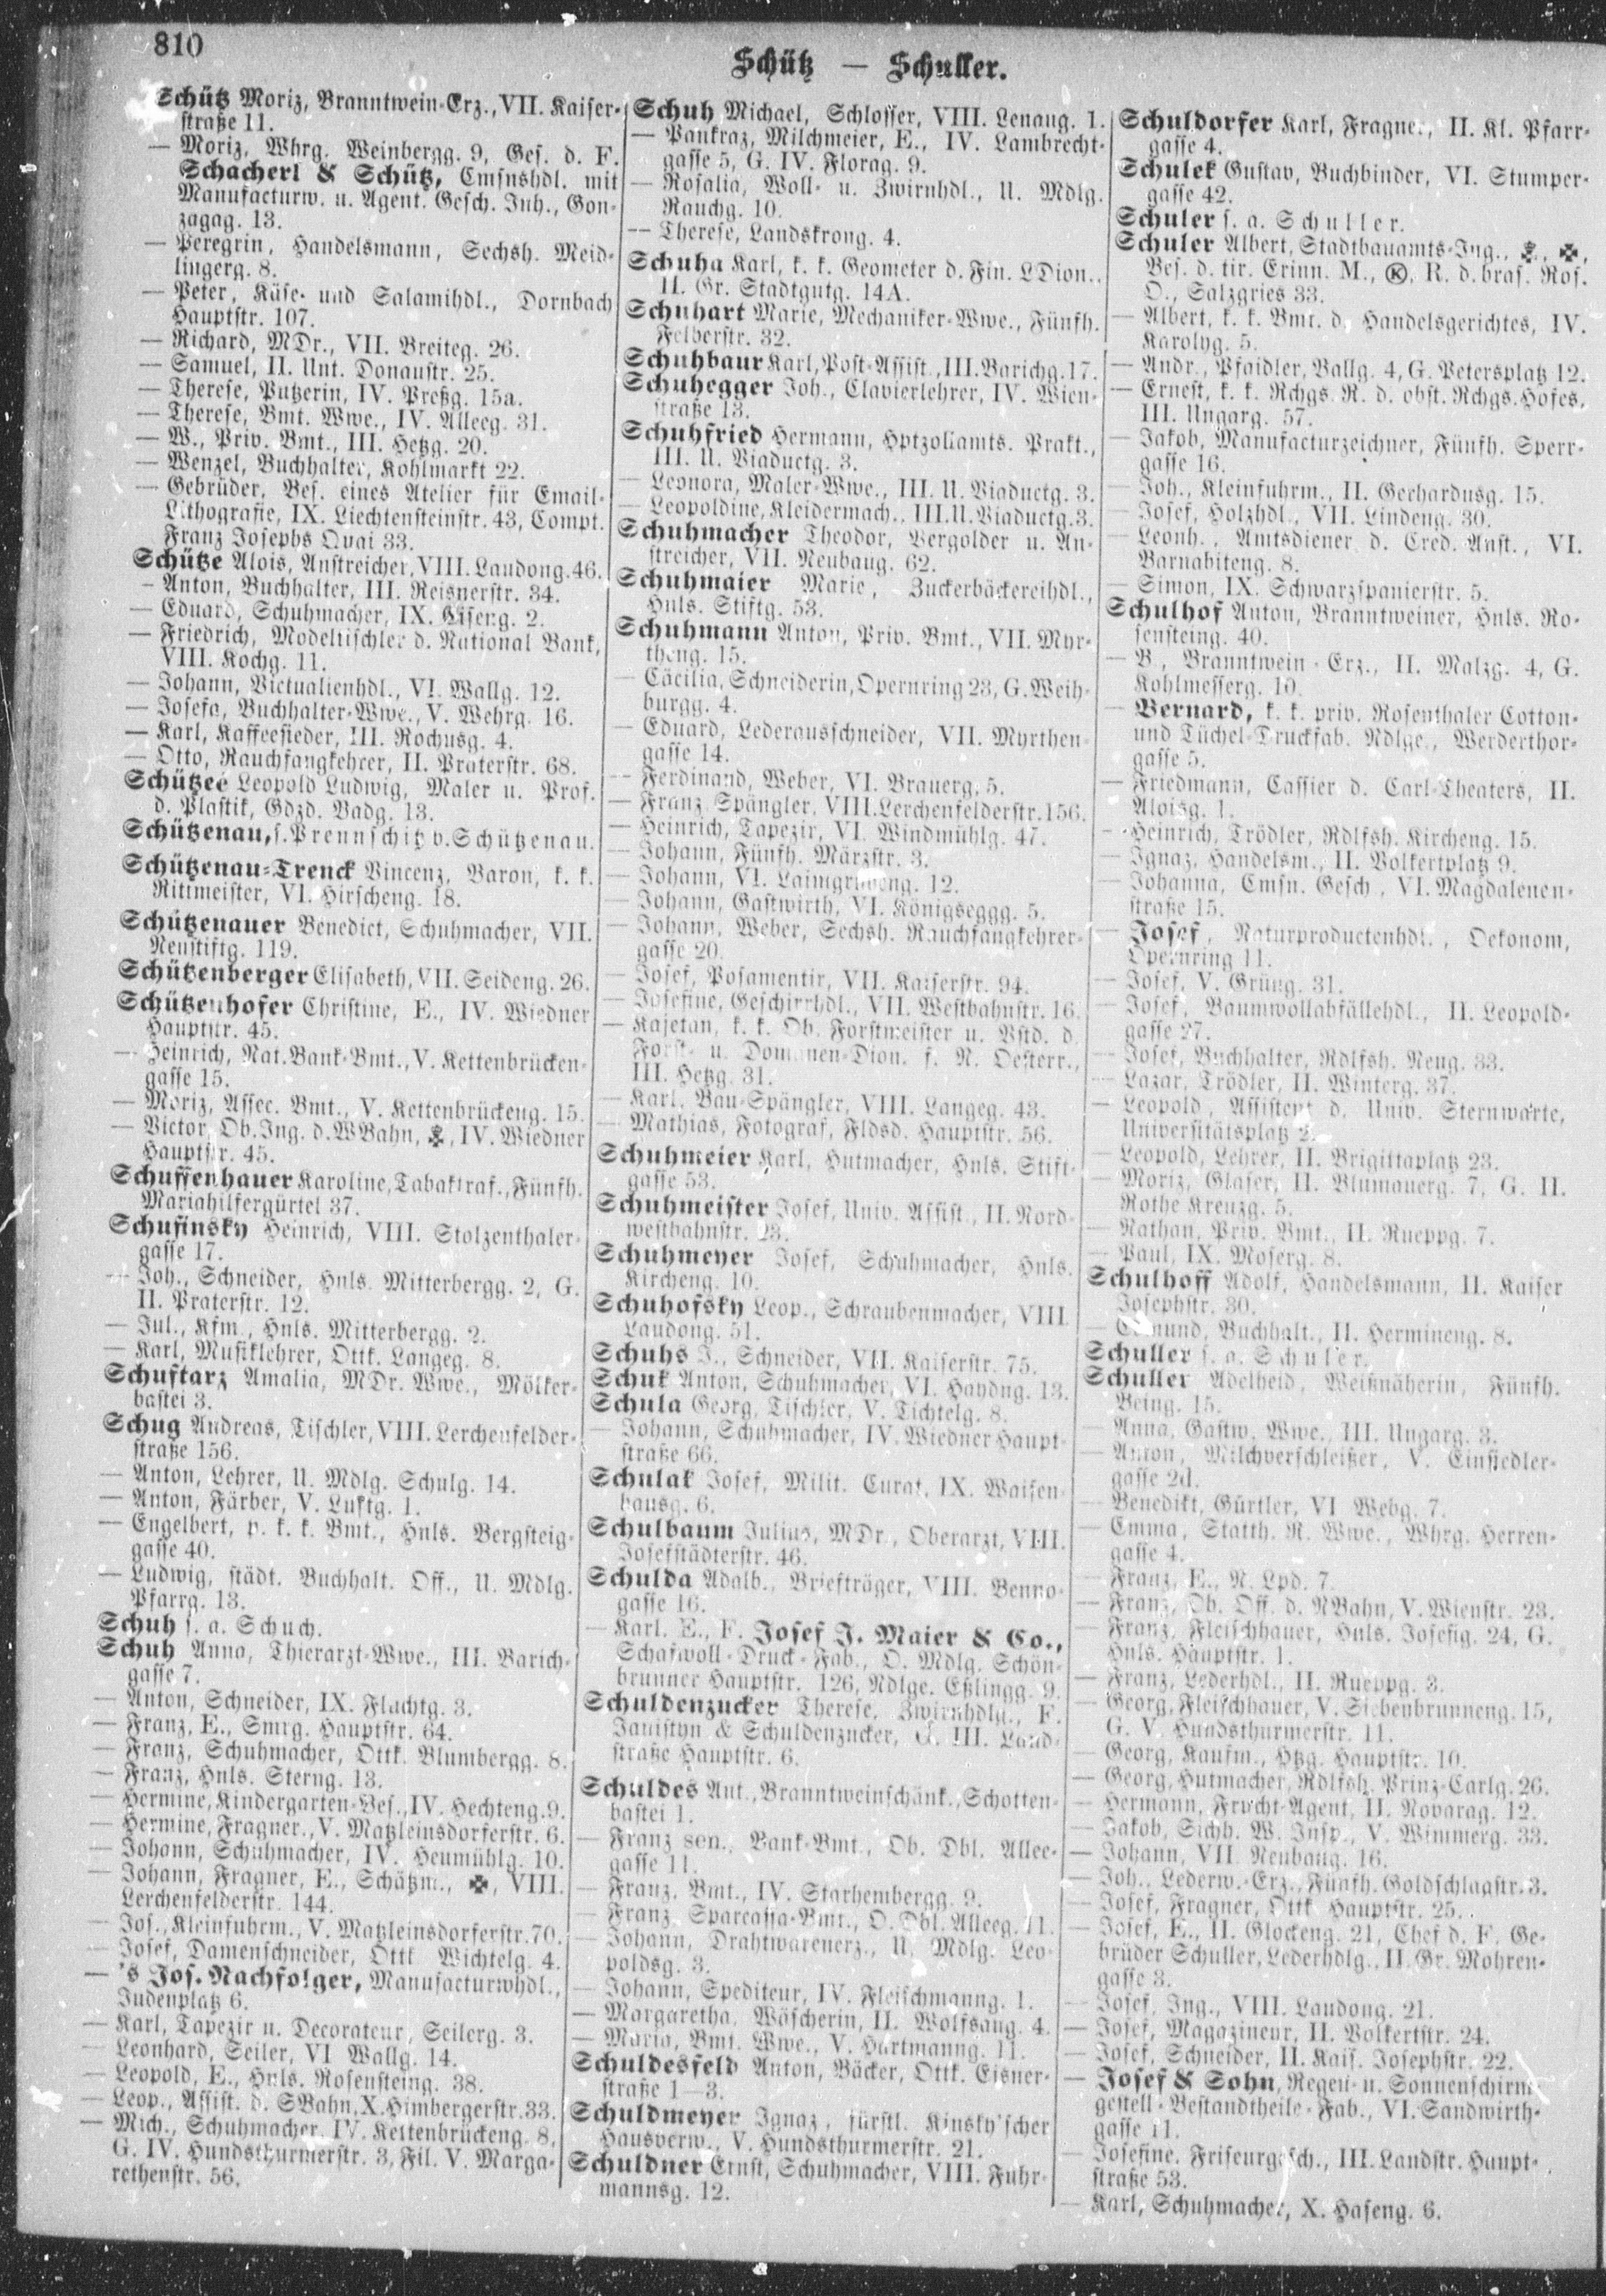 810
Schütz — Schuller.
Schütz Moriz, Branntwein-Erz., VII. Kaiser-
straße 11.
— Moriz, Whrg. Weinbergg. 9, Ges. d. F.
Schacherl & Schütz, Cmsnshdl. mit
Manufacturw. u. Agent. Gesch. Inh., Gon-
zagag. 13.
— Peregrin, Handelsmann, Sechsh. Meid-
lingerg. 8.
— Peter, Käse- und Salamihdl., Dornbach
Hauptstr. 107.
— Richard, MDr., VII. Breiteg. 26.
— Samuel, II. Unt. Donaustr. 25.
— Therese, Putzerin, IV. Preßg. 15a.
— Therese, Bmt. Wwe., IV. Alleeg. 31.
— W., Priv. Bmt., III. Hetzg. 20.
— Wenzel, Buchhalter, Kohlmarkt 22.
— Gebrüder, Bes. eines Atelier für Email-
Lithografie, IX. Liechtensteinstr. 43, Compt.
Franz Josephs Quai 33.
Schütze Alois, Anstreicher, VIII. Laudong. 46.
— Anton, Buchhalter, III. Reisnerstr. 34.
— Eduard, Schuhmacher, IX. Eiseng. 2.
— Friedrich, Modelltischler d. National Bank,
VIII. Kochg. 11.
— Johann, Victualienhdl., VI. Wallg. 12.
— Josefa, Buchhalter-Wwe., V. Wehrg. 16.
— Karl, Kaffeesieder, III. Rochusg. 4.
— Otto, Rauchfangkehrer, II. Praterstr. 68.
Schützee Leopold Ludwig, Maler u. Prof.
d. Plastik, Gdzd. Badg. 13.
Schützenau, s. Prennschitz v. Schützenau.
Schützenau-Trenck Vincenz, Baron, k. k.
Rittmeister, VI. Hirscheng. 18.
Schützenauer Benedict, Schuhmacher, VII.
Neustiftg. 119.
Schützenberger Elisabeth, VII. Seideng. 26.
Schützenhofer Christine, E., IV. Wiedner
Hauptstr. 45.
— Heinrich, Nat. Bank-Bmt., V. Kettenbrücken-
gasse 15.
— Moriz, Assec. Bmt., V. Kettenbrückeng. 15.
— Victor, Ob. Ing. d. WBahn, IV. Wiedner
Hauptstr. 45.
Schuffenhauer Karoline, Tabaktraf., Fünfh.
Mariahilfergürtel 37.
Schufinsky Heinrich, VIII. Stolzenthaler-
gasse 17.
— Joh., Schneider, Hnls. Mitterbergg. 2, G.
II. Praterstr. 12.
— Jul., Kfm., Hnls. Mitterbergg. 2.
— Karl, Musiklehrer, Ottk. Langeg. 8.
Schuftarz Amalia, MDr. Wwe., Mölker-
bastei 3.
Schug Andreas, Tischler, VIII. Lerchenfelder-
straße 156.
— Anton, Lehrer, U. Mdlg. Schulg. 14.
— Anton, Färber, V. Luftg. 1.
— Engelbert, p. k. k. Bmt., Hnls. Bergsteig-
gasse 40.
— Ludwig, städt. Buchhalt. Off., U. Mdlg.
Pfarrg. 13.
Schuh s. a. Schuch.
Schuh Anna, Thierarzt-Wwe., III. Barich-
gasse 7.
— Anton, Schneider, IX. Flachtg. 3.
— Franz, E., Smrg. Hauptstr. 64.
— Franz, Schuhmacher, Ottk. Blumbergg. 8.
— Franz, Hnls. Sterng. 13.
— Hermine, Kindergarten-Bes., IV. Hechteng. 9.
— Hermine, Fragner., V. Matzleinsdorferstr. 6.
— Johann, Schuhmacher, IV. Heumühlg. 10.
— Johann, Fragner, E., Schätzm., VIII.
Lerchenfelderstr. 144.
— Jos., Kleinfuhrm., V. Matzleinsdorferstr. 70.
— Josef, Damenschneider, Ottk Wichtelg. 4.
— 's Jos. Nachfolger, Manufacturwhdl.,
Judenplatz 6.
— Karl, Tapezir u. Decorateur, Seilerg. 3.
— Leonhard, Seiler, VI Wallg. 14.
— Leopold, E., Hnls. Rosensteing. 38.
— Leop., Assist. d. SBahn, X. Himbergerstr. 33.
— Mich., Schuhmacher, IV. Kettenbrückeng. 8,
G. IV. Hundsthurmerstr. 3, Fil. V. Marga-
rethenstr. 56.
Schuh Michael, Schlosser, VIII. Lenaug. 1.
— Pankraz, Milchmeier, E., IV. Lambrecht-
gasse 5, G. IV. Florag. 9.
— Rosalia, Woll- u. Zwirnhdl., U. Mdlg.
Rauchg. 10.
— Therese, Landskrong. 4.
Schuha Karl, k. k. Geometer d. Fin. LDion.,
II. Gr. Stadtgutg. 14A.
Schuhart Marie, Mechaniker-Wwe., Fünfh.
Felberstr. 32.
Schuhbaur Karl, Post-Assist., III. Barichg. 17.
Schuhegger Joh., Clavierlehrer, IV. Wien-
straße 13.
Schuhfried Hermann, Hptzollamts. Prakt.,
III. U. Viaductg. 3.
— Leonora, Maler-Wwe., III. U. Viaductg. 3.
— Leopoldine, Kleidermach., III. U. Viaductg. 3.
Schuhmacher Theodor, Vergolder u. An-
streicher, VII. Neubaug. 62.
Schuhmaier Marie, Zuckerbäckereihdl.,
Hnls. Stiftg. 53.
Schuhmann Anton, Priv. Bmt., VII. Myr-
theng. 15.
— Cäcilia, Schneiderin, Opernring 23, G. Weih-
burgg. 4.
— Eduard, Lederausschneider, VII. Myrthen-
gasse 14.
— Ferdinand, Weber, VI. Brauerg. 5.
— Franz Spängler, VIII. Lerchenfelderstr. 156.
— Heinrich, Tapezir, VI. Windmühlg. 47.
— Johann, Fünfh. Märzstr. 3.
— Johann, VI. Laimgrubeng. 12.
— Johann, Gastwirth, VI. Königseggg. 5.
— Johann, Weber, Sechsh. Rauchfangkehrer-
gasse 20.
— Josef, Posamentir, VII. Kaiserstr. 94.
— Josefine, Geschirrhdl., VII. Westbahnstr. 16.
— Kajetan, k. k. Ob. Forstmeister u. Vstd. d.
Forst- u. Domänen-Dion. f. N. Oesterr.,
III. Hetzg. 31.
— Karl, Bau-Spängler, VIII. Langeg. 43.
— Mathias, Fotograf, Fldsd. Hauptstr. 56.
Schuhmeier Karl, Hutmacher, Hnls. Stift-
gasse 53.
Schuhmeister Josef, Univ. Assist., II. Nord-
westbahnstr. 23.
Schuhmeyer Josef, Schuhmacher, Hnls.
Kircheng. 10.
Schuhofsky Leop., Schraubenmacher, VIII.
Laudong. 51.
Schuhs J., Schneider, VII. Kaiserstr. 75.
Schuk Anton, Schuhmacher, VI. Haydng. 13.
Schula Georg, Tischler, V. Tichtelg. 8.
— Johann, Schuhmacher, IV. Wiedner Haupt-
straße 66.
Schulak Josef, Milit. Curat, IX. Waisen-
hausg. 6.
Schulbaum Julius, MDr., Oberarzt, VIII.
Josefstädterstr. 46.
Schulda Adalb., Briefträger, VIII. Benno-
gasse 16.
— Karl, E., F. Josef J. Maier & Co.,
Schafwoll-Druck-Fab., O. Mdlg. Schön-
brunner Hauptstr. 126, Ndlge. Eßlingg. 9.
Schuldenzucker Therese, Zwirnhdlg., F.
Janistyn & Schuldenzucker, G. III. Land-
straße Hauptstr. 6.
Schuldes Ant., Branntweinschänk., Schotten-
bastei 1.
— Franz sen., Bank-Bmt., Ob. Dbl. Allee-
gasse 11.
— Franz, Bmt., IV. Starhembergg. 9.
— Franz Sparcassa-Bmt., O. Dbl. Alleeg. 11.
— Johann, Drahtwarenerz., U. Mdlg. Leo-
poldsg. 3.
— Johann, Spediteur, IV. Fleischmanng. 1.
— Margaretha, Wäscherin, II. Wolfsaug. 4.
— Maria, Bmt. Wwe., V. Hartmanng. 11.
Schuldesfeld Anton, Bäcker, Ottk. Eisner-
straße 1—3.
Schuldmeyer Ignaz, fürstl. Kinsky'scher
Hausverw., V. Hundsthurmerstr. 21.
Schuldner Ernst, Schuhmacher, VIII. Fuhr-
mannsg. 12.
Schuldorfer Karl, Fragner, II. Kl. Pfarr-
gasse 4.
Schulek Gustav, Buchbinder, VI. Stumper-
gasse 42.
Schuler s. a. Schuller.
Schuler Albert, Stadtbauamts-Ing.,
Bes. d. tir. Erinn. M., Ⓚ, R. d. bras. Ros.
O., Salzgries 33.
— Albert, k. k. Bmt. d. Handelsgerichtes, IV.
Karolyg. 5.
— Andr., Pfaidler, Ballg. 4, G. Petersplatz 12.
— Ernest, k. k. Rchgs. R. d. obst. Rchgs. Hofes,
III. Ungarg. 57.
— Jakob, Manufacturzeichner, Fünfh. Sperr-
gasse 16.
— Joh., Kleinfuhrm., II. Gerhardusg. 15.
— Josef, Holzhdl., VII. Lindeng. 30.
— Leonh., Amtsdiener d. Cred. Anst., VI.
Barnabiteng. 8.
— Simon, IX. Schwarzspanierstr. 5.
Schulhof Anton, Branntweiner, Hnls. Ro-
sensteing. 40.
— B., Branntwein-Erz., II. Malzg. 4, G.
Kohlmesserg. 10.
— Bernard, k. k. priv. Rosenthaler Cotton-
und Tüchel-Druckfab. Ndlge., Werderthor-
gasse 5.
— Friedmann, Cassier d. Carl-Theaters, II.
Aloisg. 1.
— Heinrich, Trödler, Rdlfsh. Kircheng. 15.
— Ignaz, Handelsm., II. Volkertplatz 9.
— Johanna, Cmsn. Gesch., VI. Magdalenen-
straße 15.
— Josef, Naturproductenhdl., Oekonom,
Opernring 11.
— Josef, V. Grüng. 31.
— Josef, Baumwollabfällehdl., II. Leopold-
gasse 27.
— Josef, Buchhalter, Rdlfsh. Neug. 33.
— Lazar, Trödler, II. Winterg. 37.
— Leopold, Assistent d. Univ. Sternwarte,
Universitätsplatz 2.
— Leopold, Lehrer, II. Brigittaplatz 23.
— Moriz, Glaser, II. Blumauerg. 7, G. II.
Rothe Kreuzg. 5.
— Nathan, Priv. Bmt., II. Rueppg. 7.
— Paul, IX. Moserg. 8.
Schulhoff Adolf, Handelsmann, II. Kaiser
Josephstr. 30.
— Edmund, Buchhalt., II. Hermineng. 8.
Schuller s. a. Schuler.
Schuller Adelheid, Weißnäherin, Fünfh.
Being. 15.
— Anna, Gastw. Wwe., III. Ungarg. 3.
— Anton, Milchverschleißer, V. Einsiedler-
gasse 2d.
— Benedikt, Gürtler, VI Webg. 7.
— Emma, Statth. R. Wwe., Whrg. Herren-
gasse 4.
— Franz, E., N. Lpd. 7.
— Franz, Ob. Off. d. NBahn, V. Wienstr. 23.
— Franz, Fleischhauer, Hnls. Josefig. 24, G.
Hnls. Hauptstr. 1.
— Franz, Lederhdl., II. Rueppg. 3.
— Georg, Fleischhauer, V. Siebenbrunneng. 15,
G. V. Hundsthurmerstr. 11.
— Georg, Kaufm., Htzg. Hauptstr. 10.
— Georg, Hutmacher, Rdlfsh. Prinz-Carlg. 26.
— Hermann, Frucht-Agent, II. Novarag. 12.
— Jakob, Sichh. W. Insp., V. Wimmerg. 33.
— Johann, VII. Neubaug. 16.
— Joh., Lederw.-Erz., Fünfh. Goldschlagstr. 3.
— Josef, Fragner, Ottk Hauptstr. 25.
— Josef, E., II. Glockeng. 21, Chef d. F. Ge-
brüder Schuller, Lederhdlg., II. Gr. Mohren-
gasse 3.
— Josef, Ing., VIII. Laudong. 21.
— Josef, Magazineur, II. Volkertstr. 24.
— Josef, Schneider, II. Kais. Josephstr. 22.
— Josef & Sohn, Regen- u. Sonnenschirm-
gestell-Bestandtheile-Fab., VI. Sandwirth-
gasse 11.
— Josefine, Friseurgesch., III. Landstr. Haupt-
straße 53.
— Karl, Schuhmacher, X. Haseng. 6.